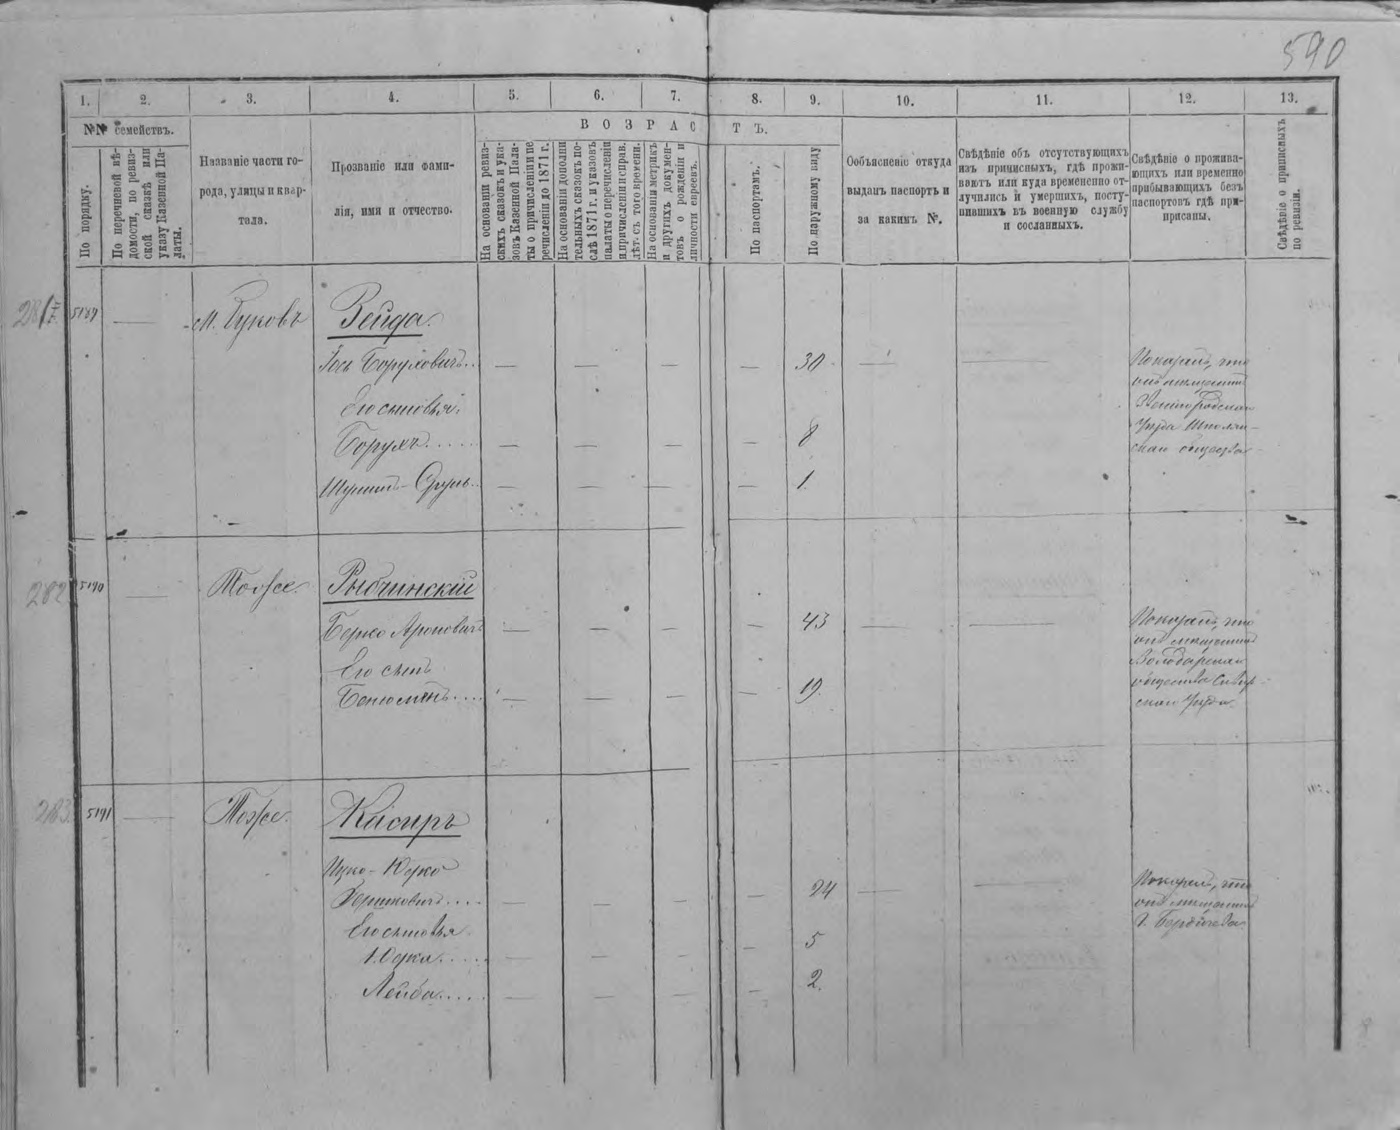 590
1.
2.
3.
4.
5.
6.
7.
8.
9.
10.
11.
12.
13.
№№ семействъ.
ВОЗРАСТЪ.
По порядку.
По перечневой вѣ-
домости, по ревиз-
ской сказкѣ или
указу Казенной Па-
латы.
Названіе части го-
рода, улицы и квар-
тала.
Прозваніе или фами-
лія, имя и отчество.
На основаніи ревиз-
скихъ сказокъ и ука-
зовъ Казенной Пала-
ты о причисленіи и пе
речисленіи до 1871 г.
На основаніи дополни
тельныхъ сказокъ по-
слѣ 1871 г. и указовъ
палаты о перечисленіи
и причисленіи и справ.
лѣт. съ того времени.
На основаніи метрикъ
и другихъ докумен-
товъ о рожденіи и
личности евреевъ.
По паспортамъ.
По наружному виду
Объясненіе откуда
выданъ паспортъ и
за какимъ №.
Свѣдѣніе объ отсутствующихъ
изъ приписныхъ, гдѣ прожи-
ваютъ или куда временно от-
лучились и умершихъ, посту-
пившихъ въ военную службу
и сосланныхъ.
Свѣдѣніе о прожива-
ющихъ или временно
прибывающихъ безъ
паспортовъ гдѣ при-
приписаны.
Свѣдѣніе о приписныхъ
по ревизіи.
281
5189
М. Буковъ
Зейда
Іось Боруховичъ
30
Его сыновья
Борухъ
8
Шулимъ-Сруль
1
Показалъ, что
онъ мѣщанинъ
Звенигородскаго
уѣзда Шполян-
скаго общества
282
5190
Тоже
Рыбчинскій
Берко Ароновичъ
43
Его сынъ
Бенюминъ
19
Показалъ, что
онъ мѣщанинъ
Володарскаго
общества Сквир-
скаго уѣзда
283
5191
Тоже
Касиръ
Ицко-Юрко
Гершковичъ
24
Его сыновья
5
Лейба
2
Показалъ, что
онъ мѣщанинъ
г. Бердичева